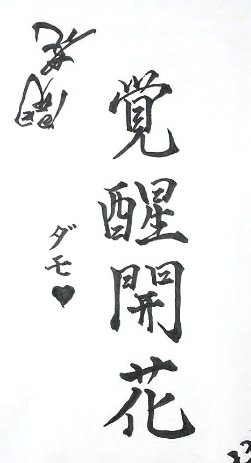 覚醒開花
ダモ♥